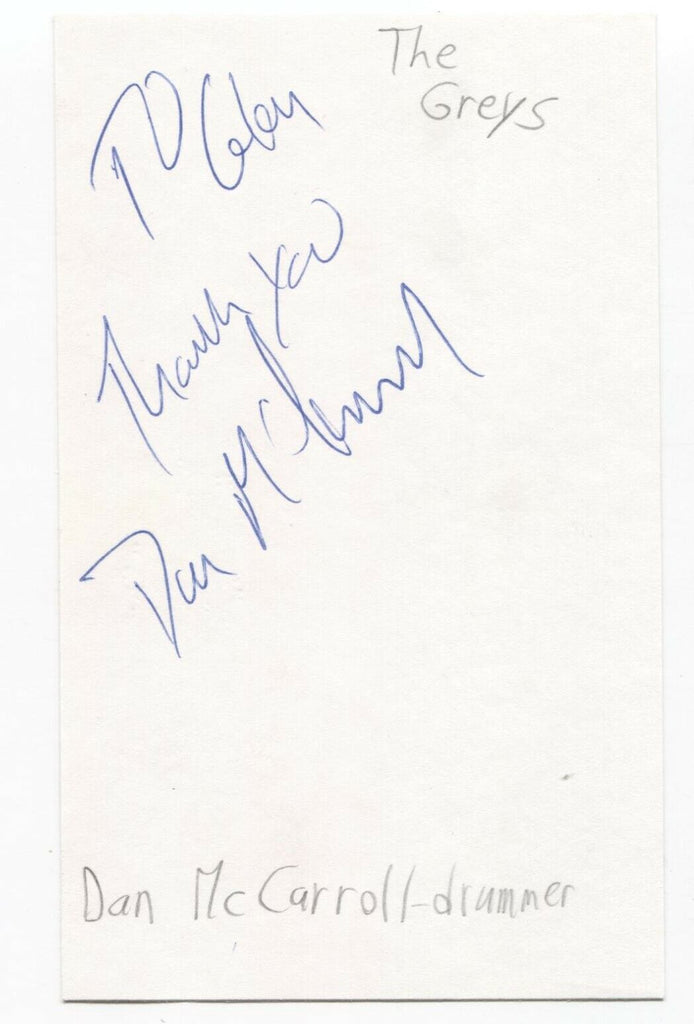 The
Greys
To Glen
Thank You
Dan McCarroll
Dan McCarroll-drummer